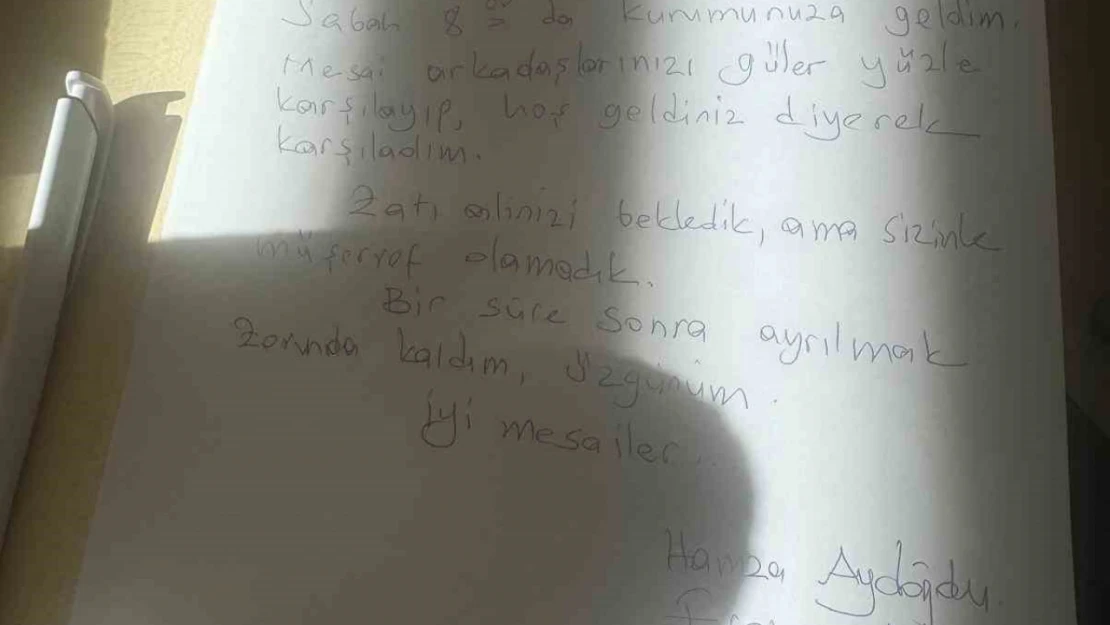 Sabah 8 00 da kurumunuza geldim.
Mesai arkadaşlarınızı güler yüzle
karşılayıp, hoş geldiniz diyerek
karşıladım.
Zatı alinizi bekledik, ama sizinle
müşerref olamadık.
Bir süre sonra ayrılmak
Zorunda kaldım, üzgünüm.
iyi mesailer..
Hamza Aydoğdu